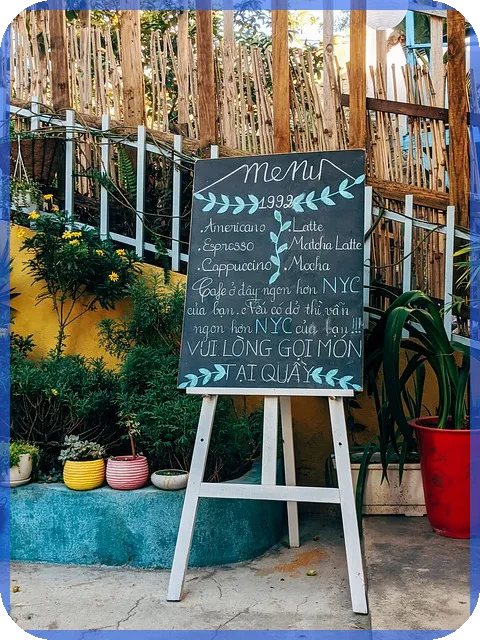 menu
1992
. Americano . Latte
. Espresso . Matcha Latte
. Cappuccino . Mocha
Cafe ở đây ngon hơn NYC
của bạn. Nếu có dở thì vẫn
ngon hơn NYC của bạn !!!
VUI LÒNG GỌI MÓN
TẠI QUẦY